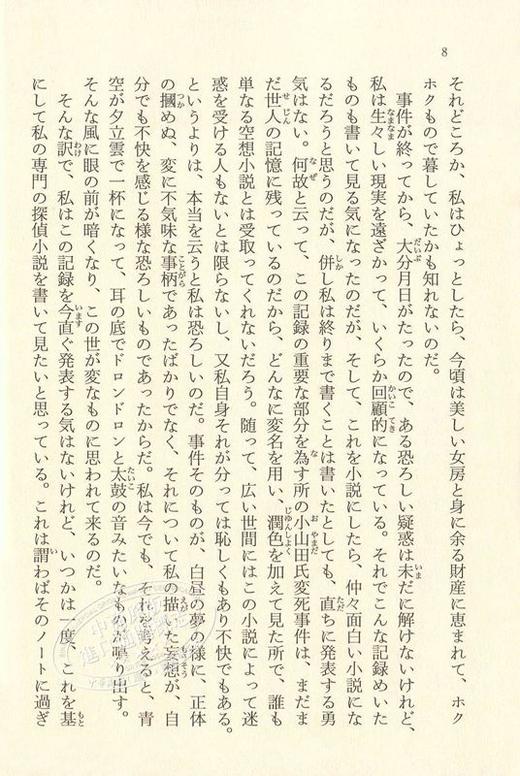 8
それどころか、私はひょっとしたら、今頃は美しい女房と身に余る財産に恵まれて、ホク
ホクもので暮していたかも知れないのだ。
事件が終ってから、大分月日がたったので、ある恐ろしい疑惑は未だに解けないけれど、
私は生々しい現実を遠ざかって、いくらか回顧的になっている。それでこんな記録めいた
ものも書いて見る気になったのだが、そして、これを小説にしたら、仲々面白い小説にな
るだろうと思うのだが、併し私は終りまで書くことは書いたとしても、直ちに発表する勇
気はない。何故と云って、この記録の重要な部分を為す所の小山田氏変死事件は、まだま
だ世人の記憶に残っているのだから、どんなに変名を用い、潤色を加えて見た所で、誰も
単なる空想小説とは受取ってくれないだろう。随って、広い世間にはこの小説によって迷
惑を受ける人もないとは限らないし、又私自身それが分っては恥しくもあり不快でもある。
というよりは、本当を云うと私は恐ろしいのだ。事件そのものが、白昼の夢の様に、正体
の摑めぬ、変に不気味な事柄であったばかりでなく、それについて私の描いた妄想が、自
分でも不快を感じる様な恐ろしいものであったからだ。私は今でも、それを考えると、青
空が夕立雲で一杯になって、耳の底でドロンドロンと太鼓の音みたいなものが鳴り出す。
そんな風に眼の前が暗くなり、この世が変なものに思われて来るのだ。
そんな訳で、私はこの記録を今直ぐ発表する気はないけれど、いつかは一度、これを基
にして私の専門の探偵小説を書いて見たいと思っている。これは謂わばそのノートに過ぎ